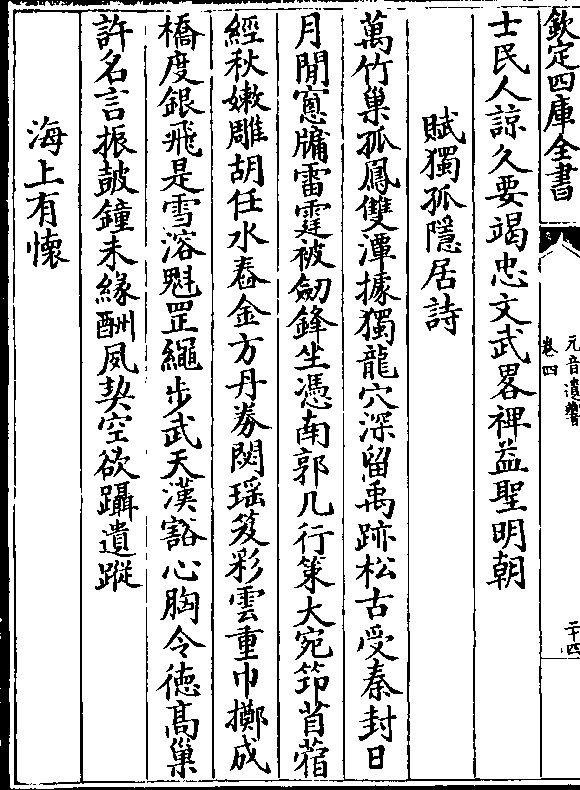 欽定四庫全書
元音遺響
卷四
二十四
士民人諒久要竭忠文武畧裨益聖明朝
賦獨孤隱居詩
萬竹巢孤鳳雙潭據獨龍穴深留禹跡松古受秦封日
月閒窻牖雷霆被劒鋒坐憑南郭几行策大宛筇苜蓿
經秋嫩雕胡任水舂金方丹券閟瑶笈彩雲重巾擲成
橋度銀飛是雪溶魁罡繩步武天漢豁心胸令徳髙巢
許名言振皷鐘未緣酬夙契空欲躡遺蹤
海上有懷